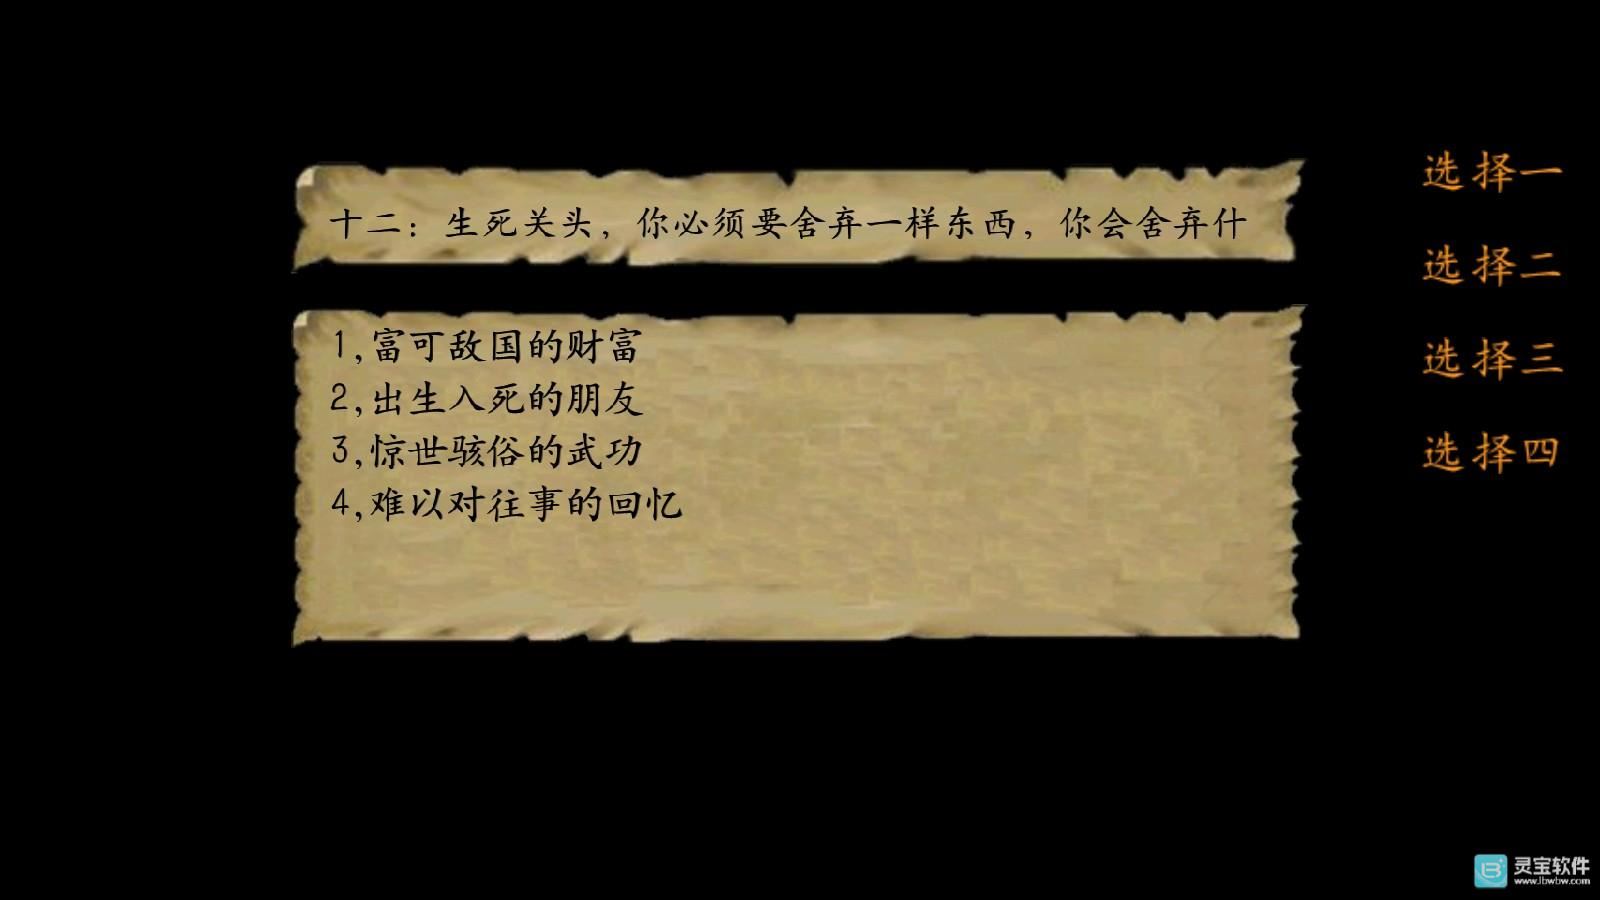 十二：生死关头，你必须要舍弃一样东西，你会舍弃什
1,富可敌国的财富
2,出生入死的朋友
3,惊世骇俗的武功
4,难以对往事的回忆
选择一
选择二
选择三
选择四
灵宝软件
www.lbwbw.com